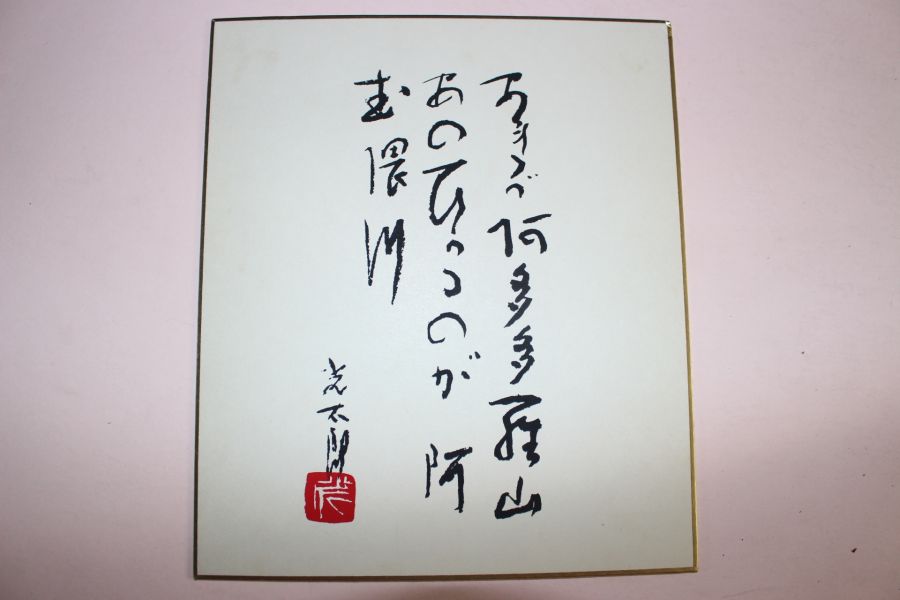 あれが阿多多羅山
あのひかるのが 阿
武隈川
光太郎